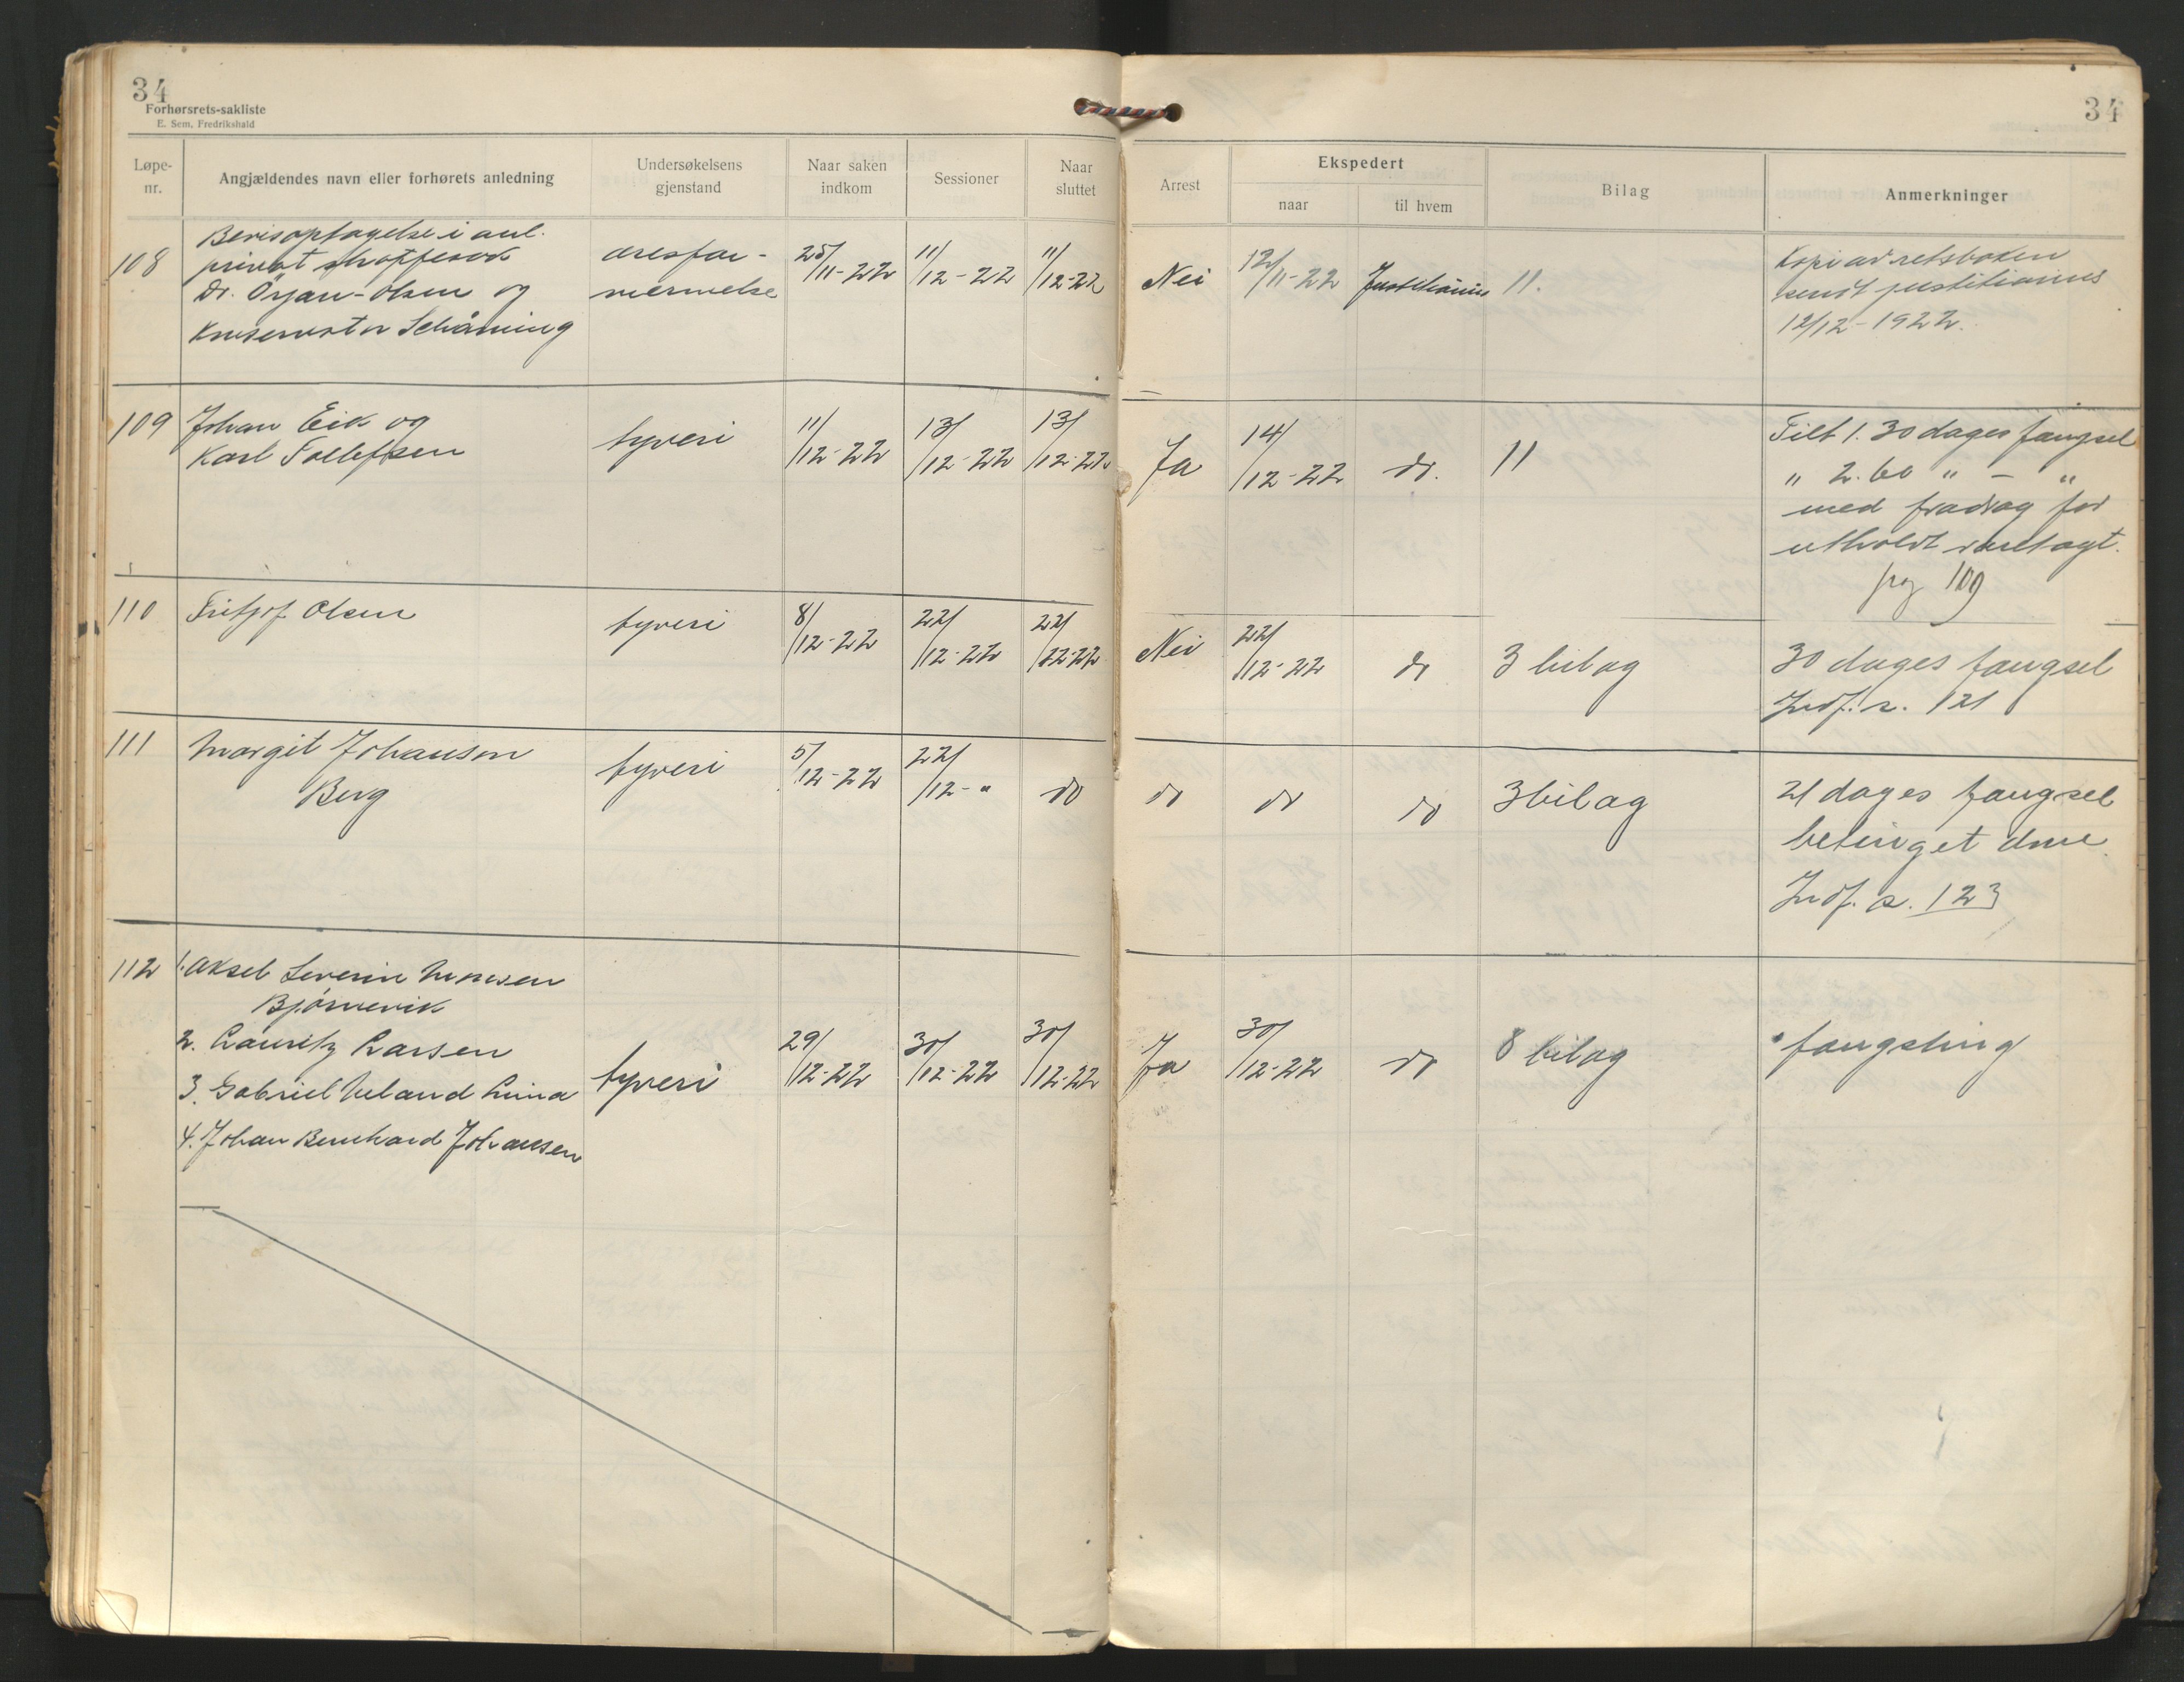 34
Forhørsrets-sakliste
E. Sem, Fredrikshald
34
Løpe-nr.
Angjældendes navn eller forhørets anledning
Undersøkelsens gjenstand
Naar saken indkom
Sessioner
Naar sluttet
Arrest
Ekspedert
naar
til hvem
Bilag
Anmerkninger
108
Bevisoptagelse i anl.
privat straffesak
Dr. Örjan-Olsen og
Konservator Schåning
æresfor-
nærmelse
25/11-22
11/12-22
11/12-22
Nei
12/11-22
Justitiarius
11.
Kopi av retsboken
sendt justitiarius
12/12-1922.
109
Johan Eik og
Karl Tollefsen
tyveri
11/12-22
13/12-22
13/12-22
Ja
14/12-22
do.
11
Tilt 1. 30 dages fængsel
" 2. 60 " - "
med fradrag for
utholdt varetægt.
pag 109
110
Fritjof Olsen
tyveri
8/12-22
22/12-22
22/12-22
Nei
22/12-22
do
3 bilag
30 dages fængsel
Jndf. s. 121
111
Margit Johanson
Berg
tyveri
5/12-22
22/12-"
do
do
do
do
3 bilag
21 dages fængsel
betinget dom
Jndf. s. 123
112
1. Aksel Severin Monsen
Bjørnevik
2. Lauritz Larsen
3. Gabriel Meland Lima
4. Johan Bernhard Johansen
tyveri
29/12-22
30/12-22
30/12-22
Ja
30/12-22
do
8 bilag
fængsling